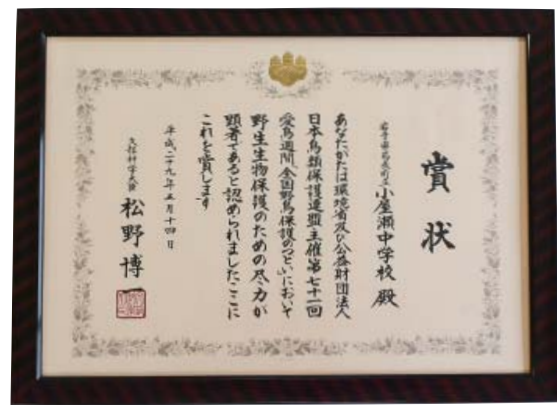 賞状
岩手県葛巻町立小屋瀬中学校 殿
あなたがたは環境省及び公益財団法人
日本鳥類保護連盟主催第七十一回
愛鳥週間、全国野鳥保護のつどいにおいて
野生生物保護のための尽力が
顕著であると認められましたここに
これを賞します
平成二十九年五月十四日
文部科学大臣 松野博一